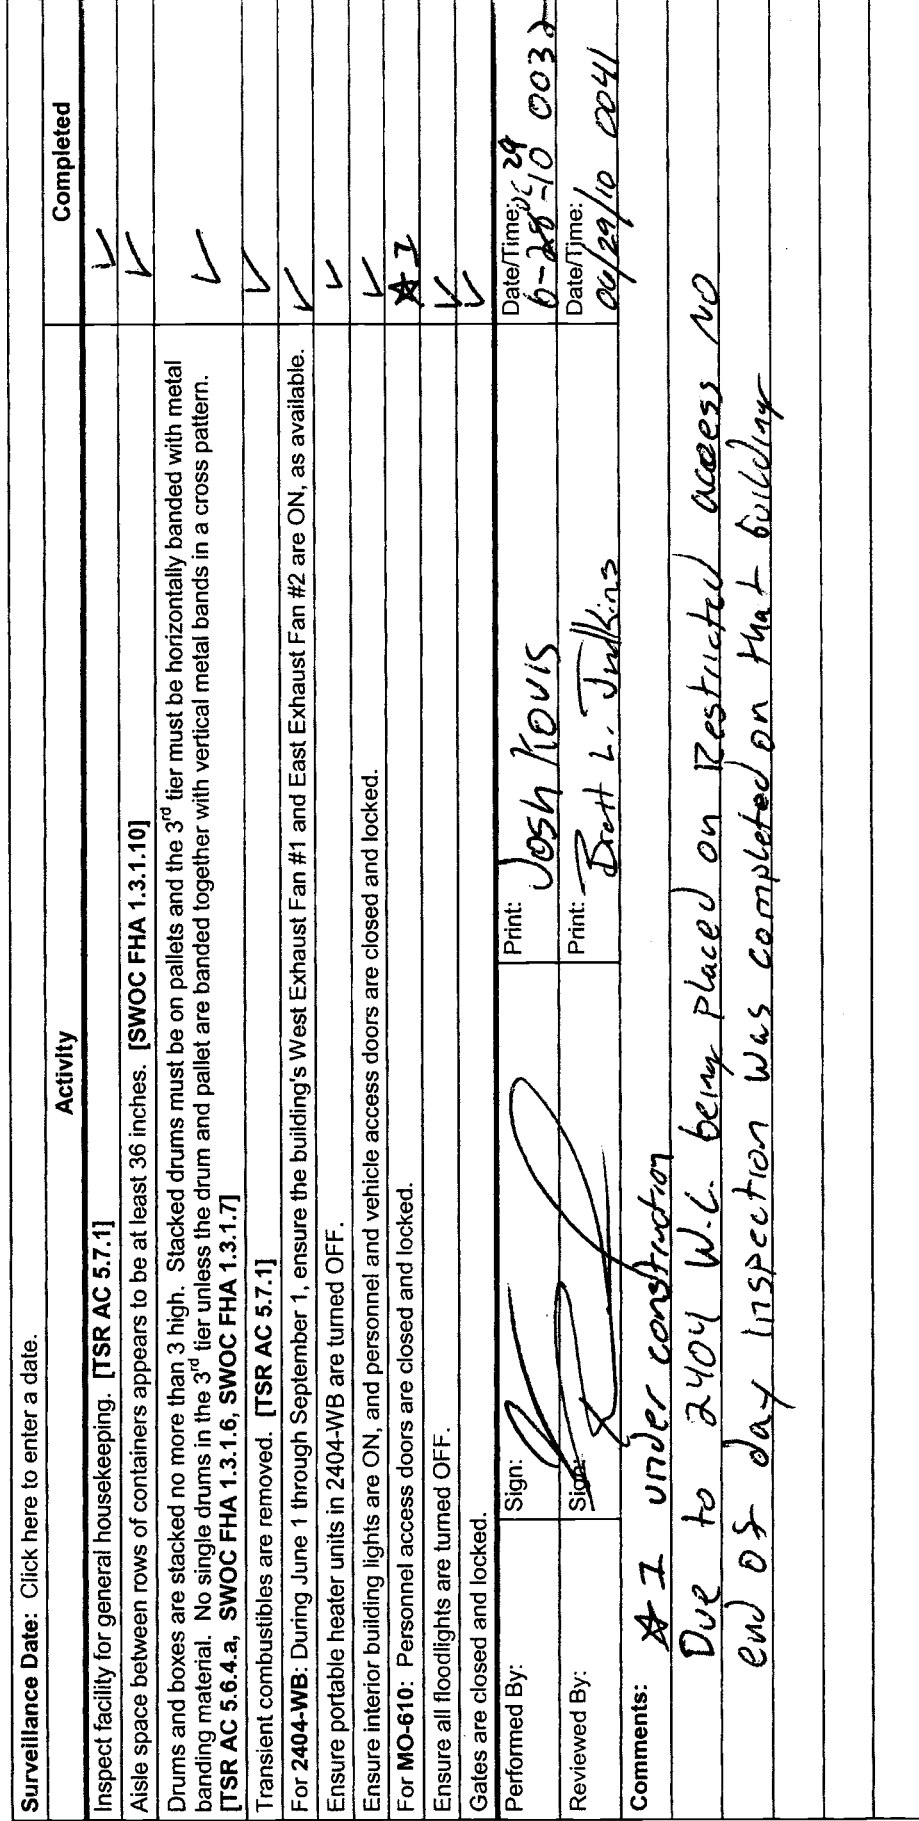 Surveillance Date: Click here to enter a date.
Activity Completed
Inspect facility for general housekeeping. [TSR AC 5.7.1] ✓
Aisle space between rows of containers appears to be at least 36 inches. [SWOC FHA 1.3.1.10] ✓
Drums and boxes are stacked no more than 3 high. Stacked drums must be on pallets and the 3rd tier must be horizontally banded with metal
banding material. No single drums in the 3rd tier unless the drum and pallet are banded together with vertical metal bands in a cross pattern. ✓
[TSR AC 5.6.4.a, SWOC FHA 1.3.1.6, SWOC FHA 1.3.1.7]
Transient combustibles are removed. [TSR AC 5.7.1] ✓
For 2404-WB: During June 1 through September 1, ensure the building's West Exhaust Fan #1 and East Exhaust Fan #2 are ON, as available. ✓
Ensure portable heater units in 2404-WB are turned OFF. ✓
Ensure interior building lights are ON, and personnel and vehicle access doors are closed and locked. ✓
For MO-610: Personnel access doors are closed and locked. ☆1
Ensure all floodlights are turned OFF. ✓
Gates are closed and locked. ✓
Performed By: Sign: Print: Josh Kovis Date/Time: 6-28-10 0032
29
Reviewed By: Sign: Print: Brett L. Judkins Date/Time: 06/29/10 0041
Comments: ☆1 under construction
Due to 2404 W.C. being placed on Restricted access NO
end of day inspection was completed on that building